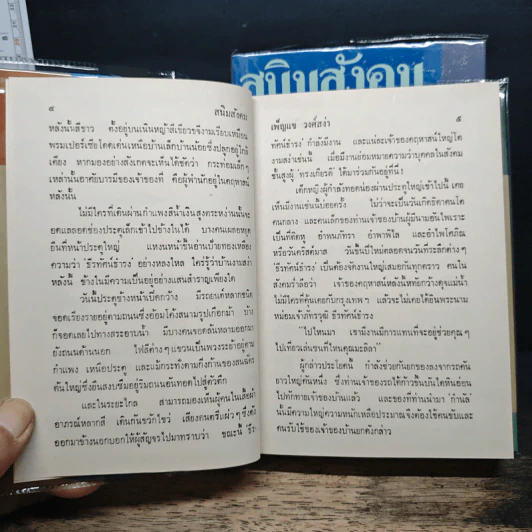 สนิมสังคม
๔ สนิมสังคม
หลังนั้นสีขาว ตั้งอยู่บนเนินหญ้าสีเขียวขจีงามเรียบเหมือน
พรมเปอร์เซีย โดดเด่นเหนือบ้านเล็กบ้านน้อยซึ่งปลูกอยู่ใกล้
เคียง หากมองอย่างสังเกตจะเห็นได้ชัดว่า กระท่อมเล็กๆ
เหล่านั้นอาศัยบารมีของเจ้าของที่ คือผู้พำนักอยู่ในคฤหาสน์
หลังนั้น
ไม่มีใครที่เดินผ่านกำแพงสีน้ำเงินสูงตระหง่านนั้นจะ
อดแลลอดช่องประตูเล็กเข้าไปข้างในได้ บางคนเผลอหยุด
ยืนที่หน้าประตูใหญ่ แหงนหน้าขึ้นอ่านป้ายทองเหลือง
ความว่า 'ธีรทัศน์ธำรง' อย่างหลงใหล ใครรู้ว่าบ้านงามสง่า
หลังนี้ ข้างในมีความเป็นอยู่อย่างแสนสำราญเพียงใด
วันนี้ประตูข้างหน้าเปิดกว้าง มีรถยนต์หลากชนิด
จอดเรียงรายอยู่ตามถนนซึ่งอ้อมโค้งสนามรูปเกือกม้า บาง
ก็จอดเลยไปทางสระอาบน้ำ มีบางคนจอดล้นหลามออกมา
ยังถนนด้านนอก ไฟสีต่างๆ แขวนเป็นพวงระย้าอยู่ตาม
กำแพง เหนือประตู และแม้กระทั่งตามกิ่งก้านของสนฉัตร
ต้นใหญ่ซึ่งยืนสงบซึมอยู่ริมถนนอันทอดไปสู่ตัวตึก
และในระยะไกล สามารถมองเห็นผู้คนในเสื้อผ้า
อาภรณ์หลากสี เดินกันขวักไขว่ เสียงดนตรีแผ่วๆ ซึ่งดัง
ออกมาข้างนอกบอกให้ผู้สัญจรไปมาทราบว่า ขณะนี้ ธีร-
เพ็ญแข วงศ์สง่า ๕
ทัศน์ธำรง' กำลังมีงาน และแน่ละเจ้าของคฤหาสน์ใหญ่โต
งามสง่าเช่นนี้ เมื่อมีงานย่อมหมายความว่าบุคคลในสังคม
ชั้นสูงผู้ 'ทรงเกียรติ' ได้มาร่วมกันอยู่ที่นี่!
เด็กหญิงผู้กำลังทอดน่องผ่านประตูใหญ่เข้าไปนั้น เคย
เห็นมีงานเช่นนี้บ่อยครั้ง ไม่ว่าจะเป็นวันเกิดธิดาคนโต
คนกลาง และคนเล็กของท่านเจ้าของบ้านผู้มีนามอันไพเราะ
เป็นที่ติดหู อำพนภัทรา อำพาพิไล และอำไพโศภิณ
หรือวันคริสต์มาส วันขึ้นปีใหม่ตลอดจนวันที่ระลึกต่างๆ
'ธีรทัศน์ธำรง' เป็นต้องจัดงานใหญ่เสมอกันทุกคราว คนใน
สังคมร่ำลือว่า เจ้าของคฤหาสน์หลังนี้มั่งมีทัดเทียมดูแม่น้ำ
ไม่มีใครที่คุ้นเคยกับกรุงเทพฯ แล้วจะไม่เคยได้ยินพระนาม
หม่อมเจ้าภัทรวุฒิ ธีรทัศน์ธำรง
"ไปไหนมา เรามีงานมีการแทนที่จะอยู่ช่วยคุณๆ
ไปเที่ยวเล่นซนที่ไหนคุณมะลิลา"
ผู้กล่าวประโยคนี้ กำลังช่วยกันยกของลงจากรถคัน
ยาวใหญ่คันหนึ่ง ซึ่งท่านเจ้าของรถได้ก้าวขึ้นบันไดหินอ่อน
ไปทักทายเจ้าของบ้านแล้ว และของที่ท่านนำมา กำนัล
นั้นมีความใหญ่ความหนักเหลือประมาณ จึงต้องใช้คนขับและ
คนรับใช้ของเจ้าของบ้านยกดังกล่าว